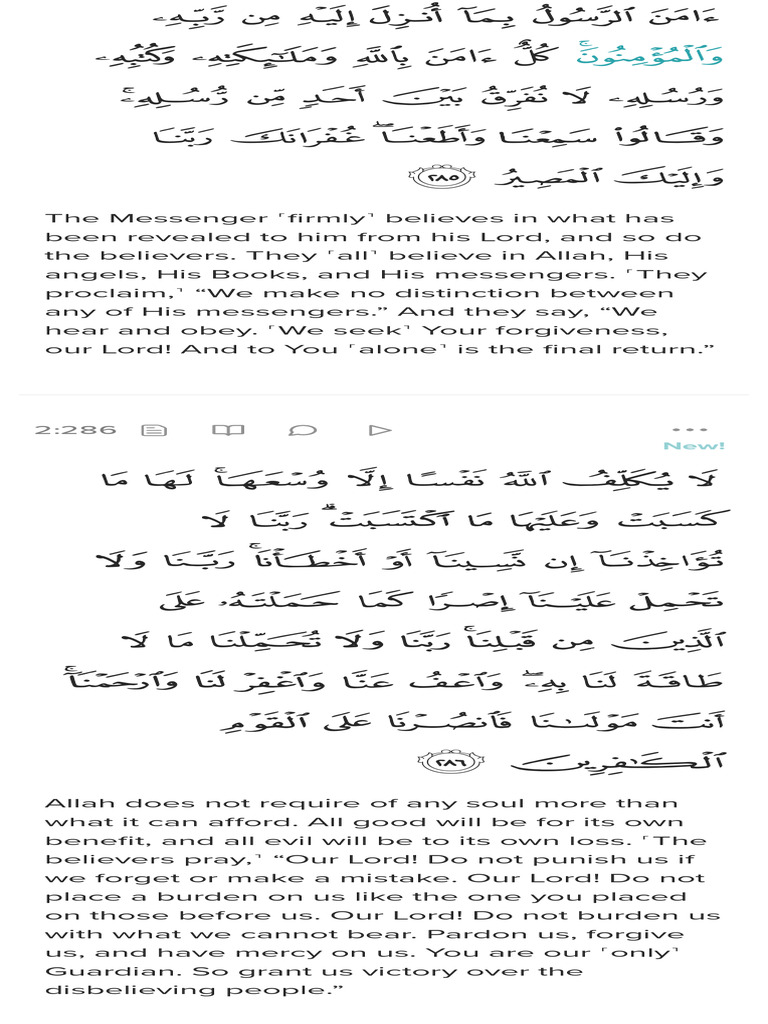 ءَامَنَ ٱلرَّسُولُ بِمَآ أُنزِلَ إِلَيْهِ مِن رَّبِّهِۦ
وَٱلْمُؤْمِنُونَ ۚ كُلٌّ ءَامَنَ بِٱللَّهِ وَمَلَـٰٓئِكَتِهِۦ وَكُتُبِهِۦ
وَرُسُلِهِۦ لَا نُفَرِّقُ بَيْنَ أَحَدٍ مِّن رُّسُلِهِۦ ۚ
وَقَالُوا۟ سَمِعْنَا وَأَطَعْنَا ۖ غُفْرَانَكَ رَبَّنَا
وَإِلَيْكَ ٱلْمَصِيرُ ٢٨٥
The Messenger ˹firmly˺ believes in what has
been revealed to him from his Lord, and so do
the believers. They ˹all˺ believe in Allah, His
angels, His Books, and His messengers. ˹They
proclaim,˺ “We make no distinction between
any of His messengers.” And they say, “We
hear and obey. ˹We seek˺ Your forgiveness,
our Lord! And to You ˹alone˺ is the final return.”
2:286
New!
لَا يُكَلِّفُ ٱللَّهُ نَفْسًا إِلَّا وُسْعَهَا ۚ لَهَا مَا
كَسَبَتْ وَعَلَيْهَا مَا ٱكْتَسَبَتْ ۗ رَبَّنَا لَا
تُؤَاخِذْنَآ إِن نَّسِينَآ أَوْ أَخْطَأْنَا ۚ رَبَّنَا وَلَا
تَحْمِلْ عَلَيْنَآ إِصْرًا كَمَا حَمَلْتَهُۥ عَلَى
ٱلَّذِينَ مِن قَبْلِنَا ۚ رَبَّنَا وَلَا تُحَمِّلْنَا مَا لَا
طَاقَةَ لَنَا بِهِۦ ۖ وَٱعْفُ عَنَّا وَٱغْفِرْ لَنَا وَٱرْحَمْنَآ ۚ
أَنتَ مَوْلَىٰنَا فَٱنصُرْنَا عَلَى ٱلْقَوْمِ
ٱلْكَـٰفِرِينَ ٢٨٦
Allah does not require of any soul more than
what it can afford. All good will be for its own
benefit, and all evil will be to its own loss. ˹The
believers pray,˺ “Our Lord! Do not punish us if
we forget or make a mistake. Our Lord! Do not
place a burden on us like the one you placed
on those before us. Our Lord! Do not burden us
with what we cannot bear. Pardon us, forgive
us, and have mercy on us. You are our ˹only˺
Guardian. So grant us victory over the
disbelieving people.”